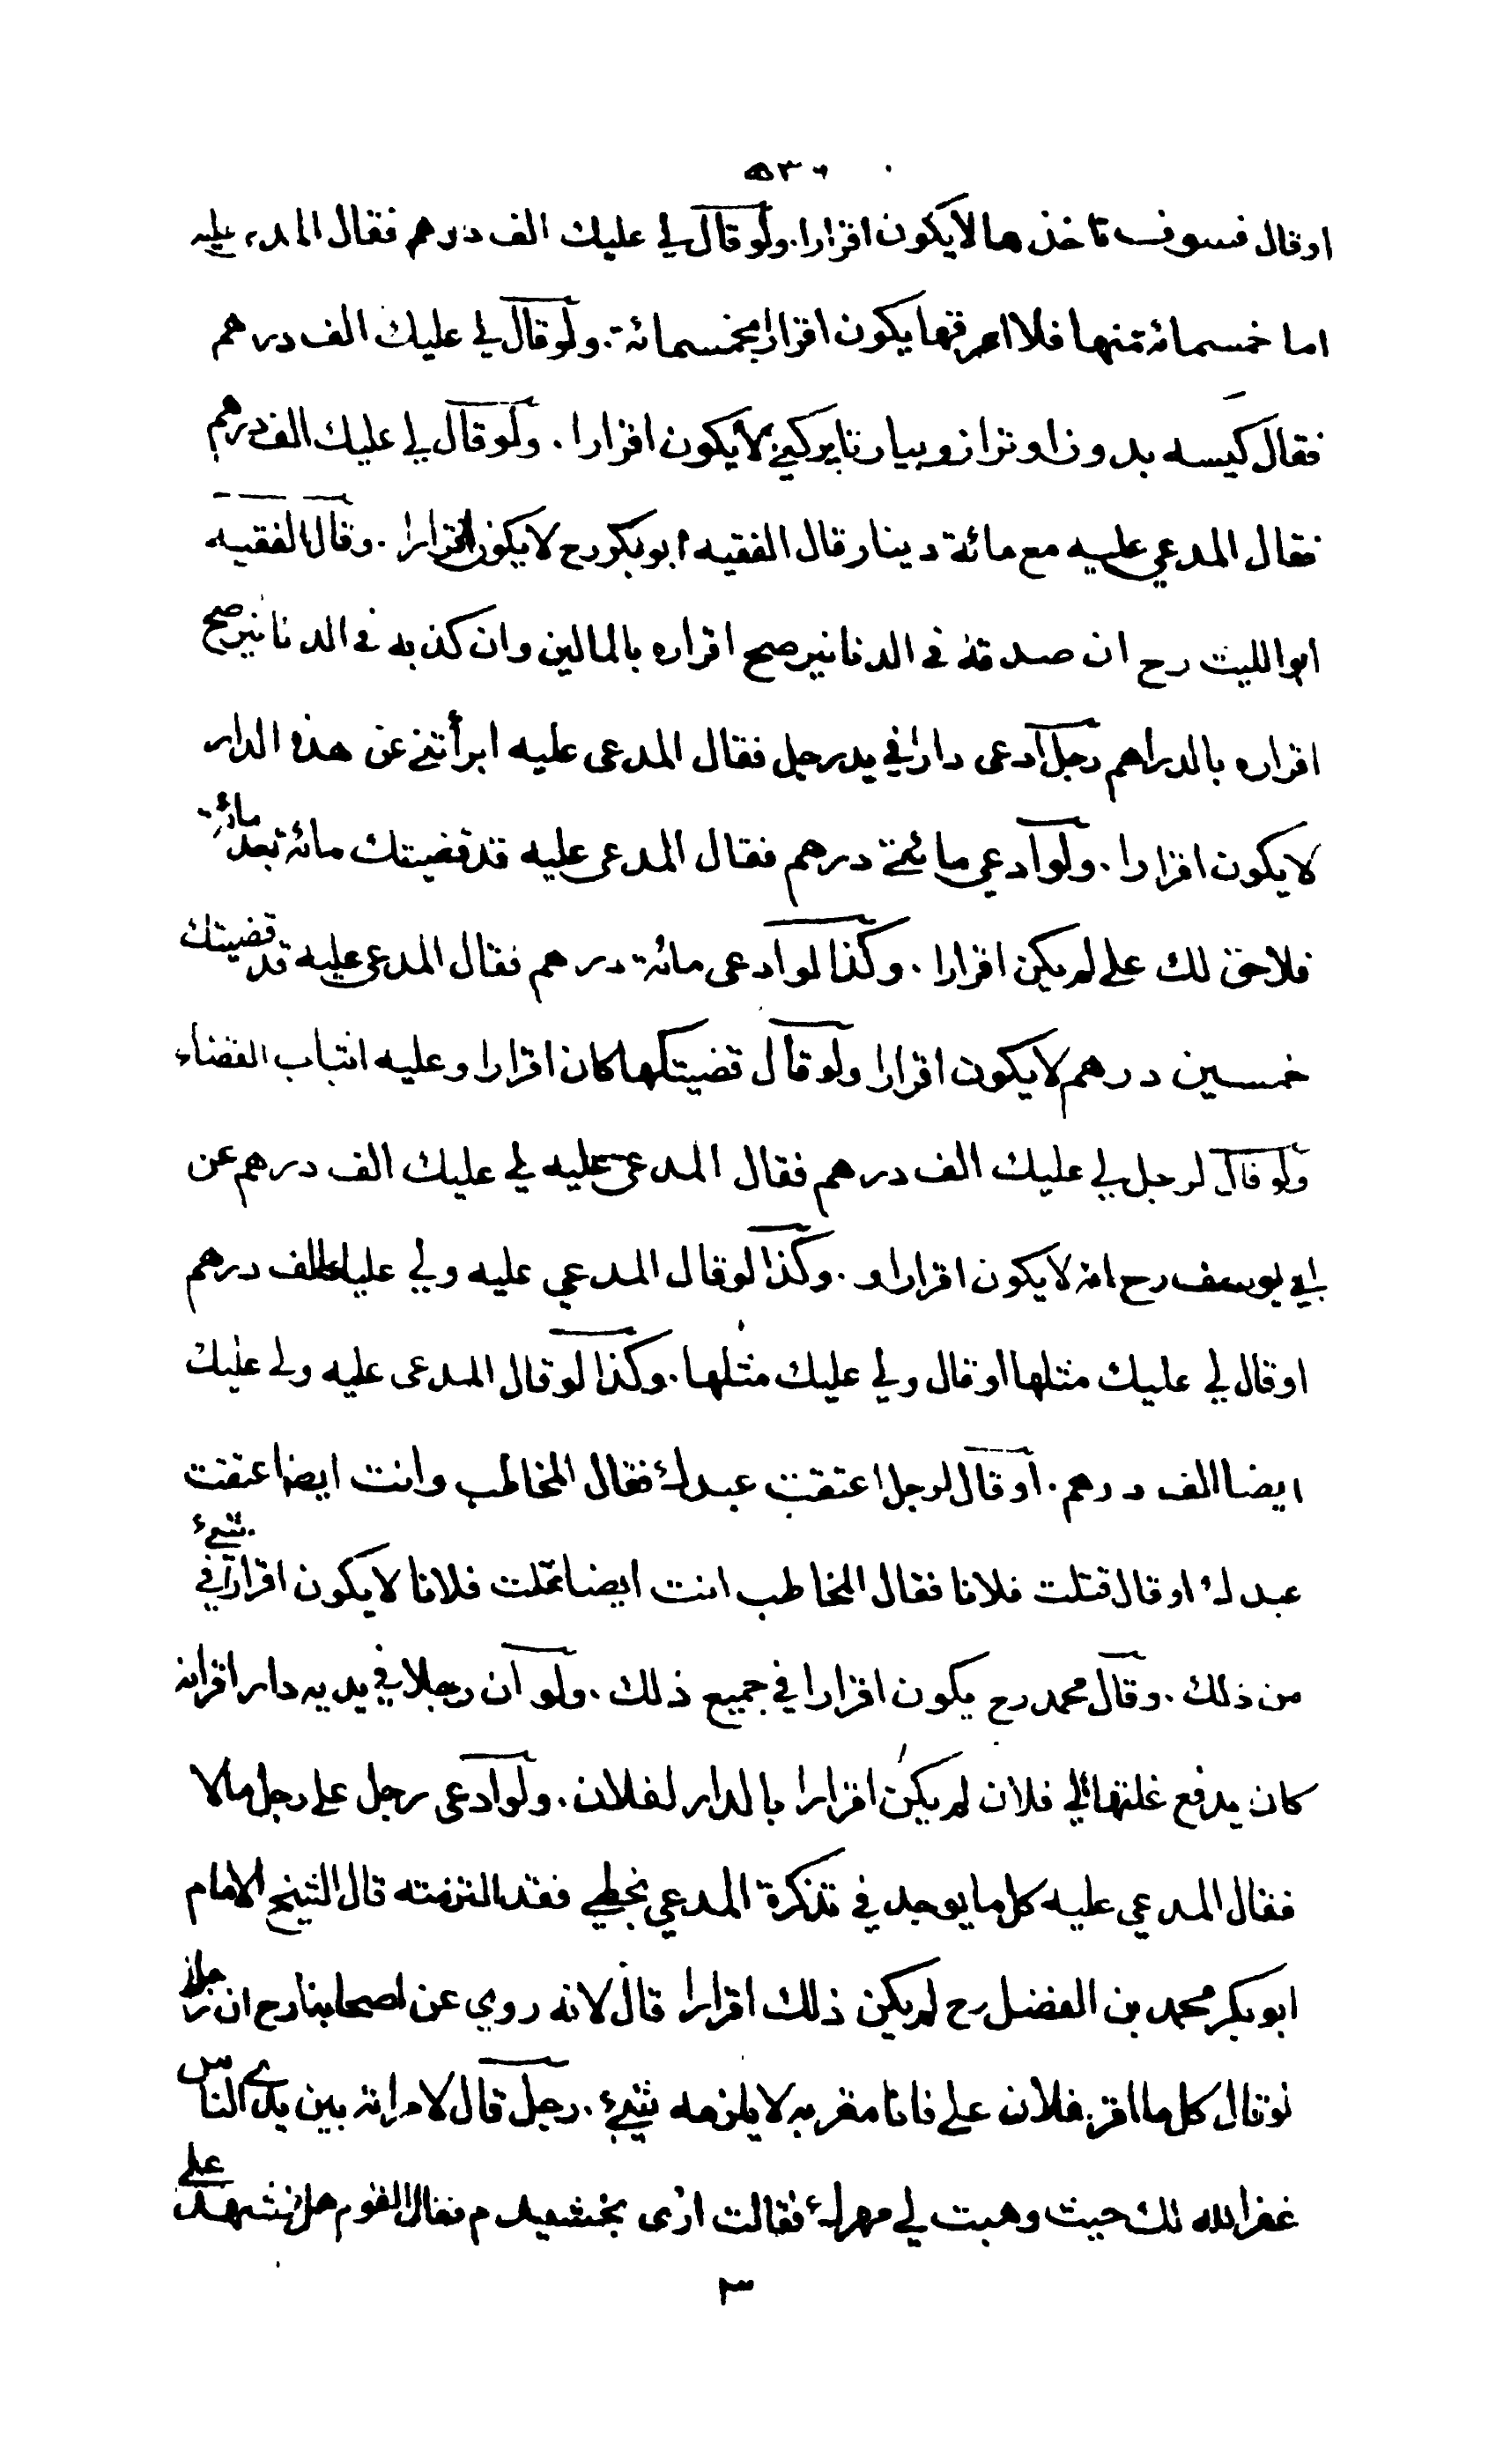 ٥٣٠
او قال فسوف تاخذها لا يكون اقرارا. ولو قال لي عليك الف درهم فقال المدعى عليه
اما خمسمائة منها فلا اعرفها يكون اقرارا بخمسمائة. ولو قال لي عليك الف درهم
فقال كيسه بدوز او ترازو بيار تا بركيني لا يكون اقرارا. ولو قال لي عليك الف درهم
فقال المدعي عليه مع مائة دينار قال الفقيه ابو بكر رح لا يكون اقرارا. وقال الفقيه
ابو الليث رح ان صدقه في الدنانير صح اقراره بالمالين وان كذبه في الدنانير صح
اقراره بالدراهم رجل ادعى دارا في يد رجل فقال المدعى عليه ابرأتني عن هذه الدار
لا يكون اقرارا. ولو ادعي مائتي درهم فقال المدعى عليه قد قضيتك مائة بعد مائة
فلا حق لك علي لم يكن اقرارا. وكذا لو ادعى مائة درهم فقال المدعى عليه قد قضيتك
خمسين درهم لا يكون اقرارا ولو قال قضيتكها كان اقرارا وعليه اثبات القضاء
ولو قال لرجل لي عليك الف درهم فقال المدعى عليه لي عليك الف درهم عن
ابي يوسف رح انه لا يكون اقرارا. وكذا لو قال المدعي عليه ولي عليك الف درهم
او قال لي عليك مثلها او قال ولي عليك مثلها. وكذا لو قال المدعى عليه ولي عليك
ايضا الف درهم. او قال لرجل اعتقت عبدك فقال المخاطب وانت ايضا اعتقت
عبدك او قال قتلت فلانا فقال المخاطب انت ايضا قتلت فلانا لا يكون اقرارا في شيء
من ذلك. وقال محمد رح يكون اقرارا في جميع ذلك. ولو ان رجلا في يديه دار اقر انه
كان يدفع غلتها الي فلان لم يكن اقرارا بالدار لفلان. ولو ادعى رجل على رجل مالا
فقال المدعي عليه كل ما يوجد في تذكرة المدعي بخطي فقد التزمته قال الشيخ الامام
ابو بكر محمد بن الفضل رح لم يكن ذلك اقرارا قال لانه روي عن اصحابنا رح ان رجلا
لو قال كل ما اقر به فلان علي فانا مقر به لا يلزمه شيء. رجل قال لامراته بين يدي الناس
غفر الله لك حيث وهبت لي مهرك فقالت اري بخشيدم فقال القوم هل نشهد على